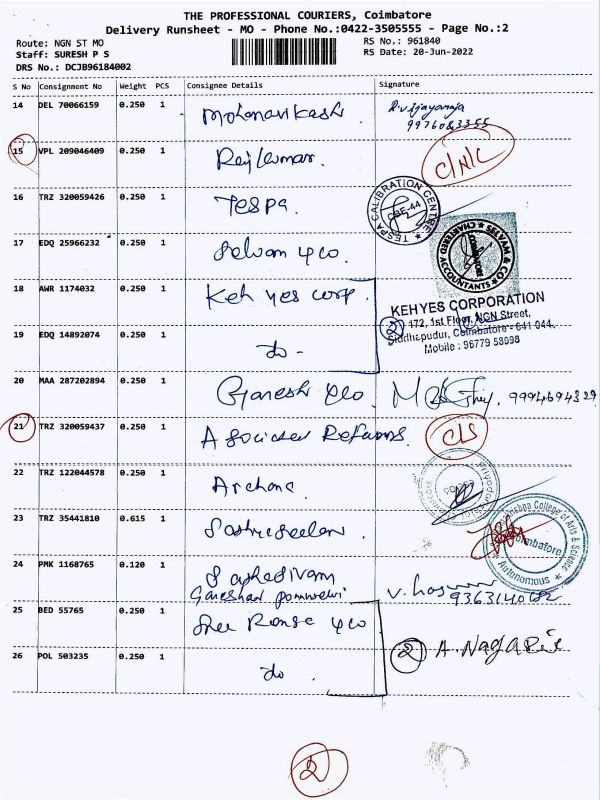 THE PROFESSIONAL COURIERS, Coimbatore
Delivery Runsheet - MO - Phone No.:0422-3505555 - Page No.:2
Route: NGN ST MO
Staff: SURESH P S
DRS No.: DCJB96184002
RS No.: 961840
RS Date: 20-Jun-2022
S No Consignment No Weight PCS Consignee Details Signature
14 DEL 70066159 0.250 1
15 VPL 209046409 0.250 1 Rajkumar.
16 TRZ 320059426 0.250 1 Tespa.
TESPA CALIBRATION CENTRE CBE-44
17 EDQ 25966232 0.250 1 Selvam & co.
SELVAM & CO CHARTERED ACCOUNTANTS
18 AWR 1174032 0.250 1 Keh yes corp.
KEHYES CORPORATION
172, 1st Floor, NGN Street,
Siddhapudur, Coimbatore - 641 044.
Mobile : 96779 58098
2
19 EDQ 14892074 0.250 1 do -
20 MAA 287202894 0.250 1 Ganesh &co 9994694329
21 TRZ 320059437 0.250 1
22 TRZ 122044578 0.250 1 Archana
23 TRZ 35441810 0.615 1
Krishna College of Arts & Science
Coimbatore
Autonomous
24 PMK 1168765 0.120 1 Sathasivam
25 BED 55765 0.250 1 &co
2 A. Nagaraj
26 POL 503235 0.250 1 do.
2